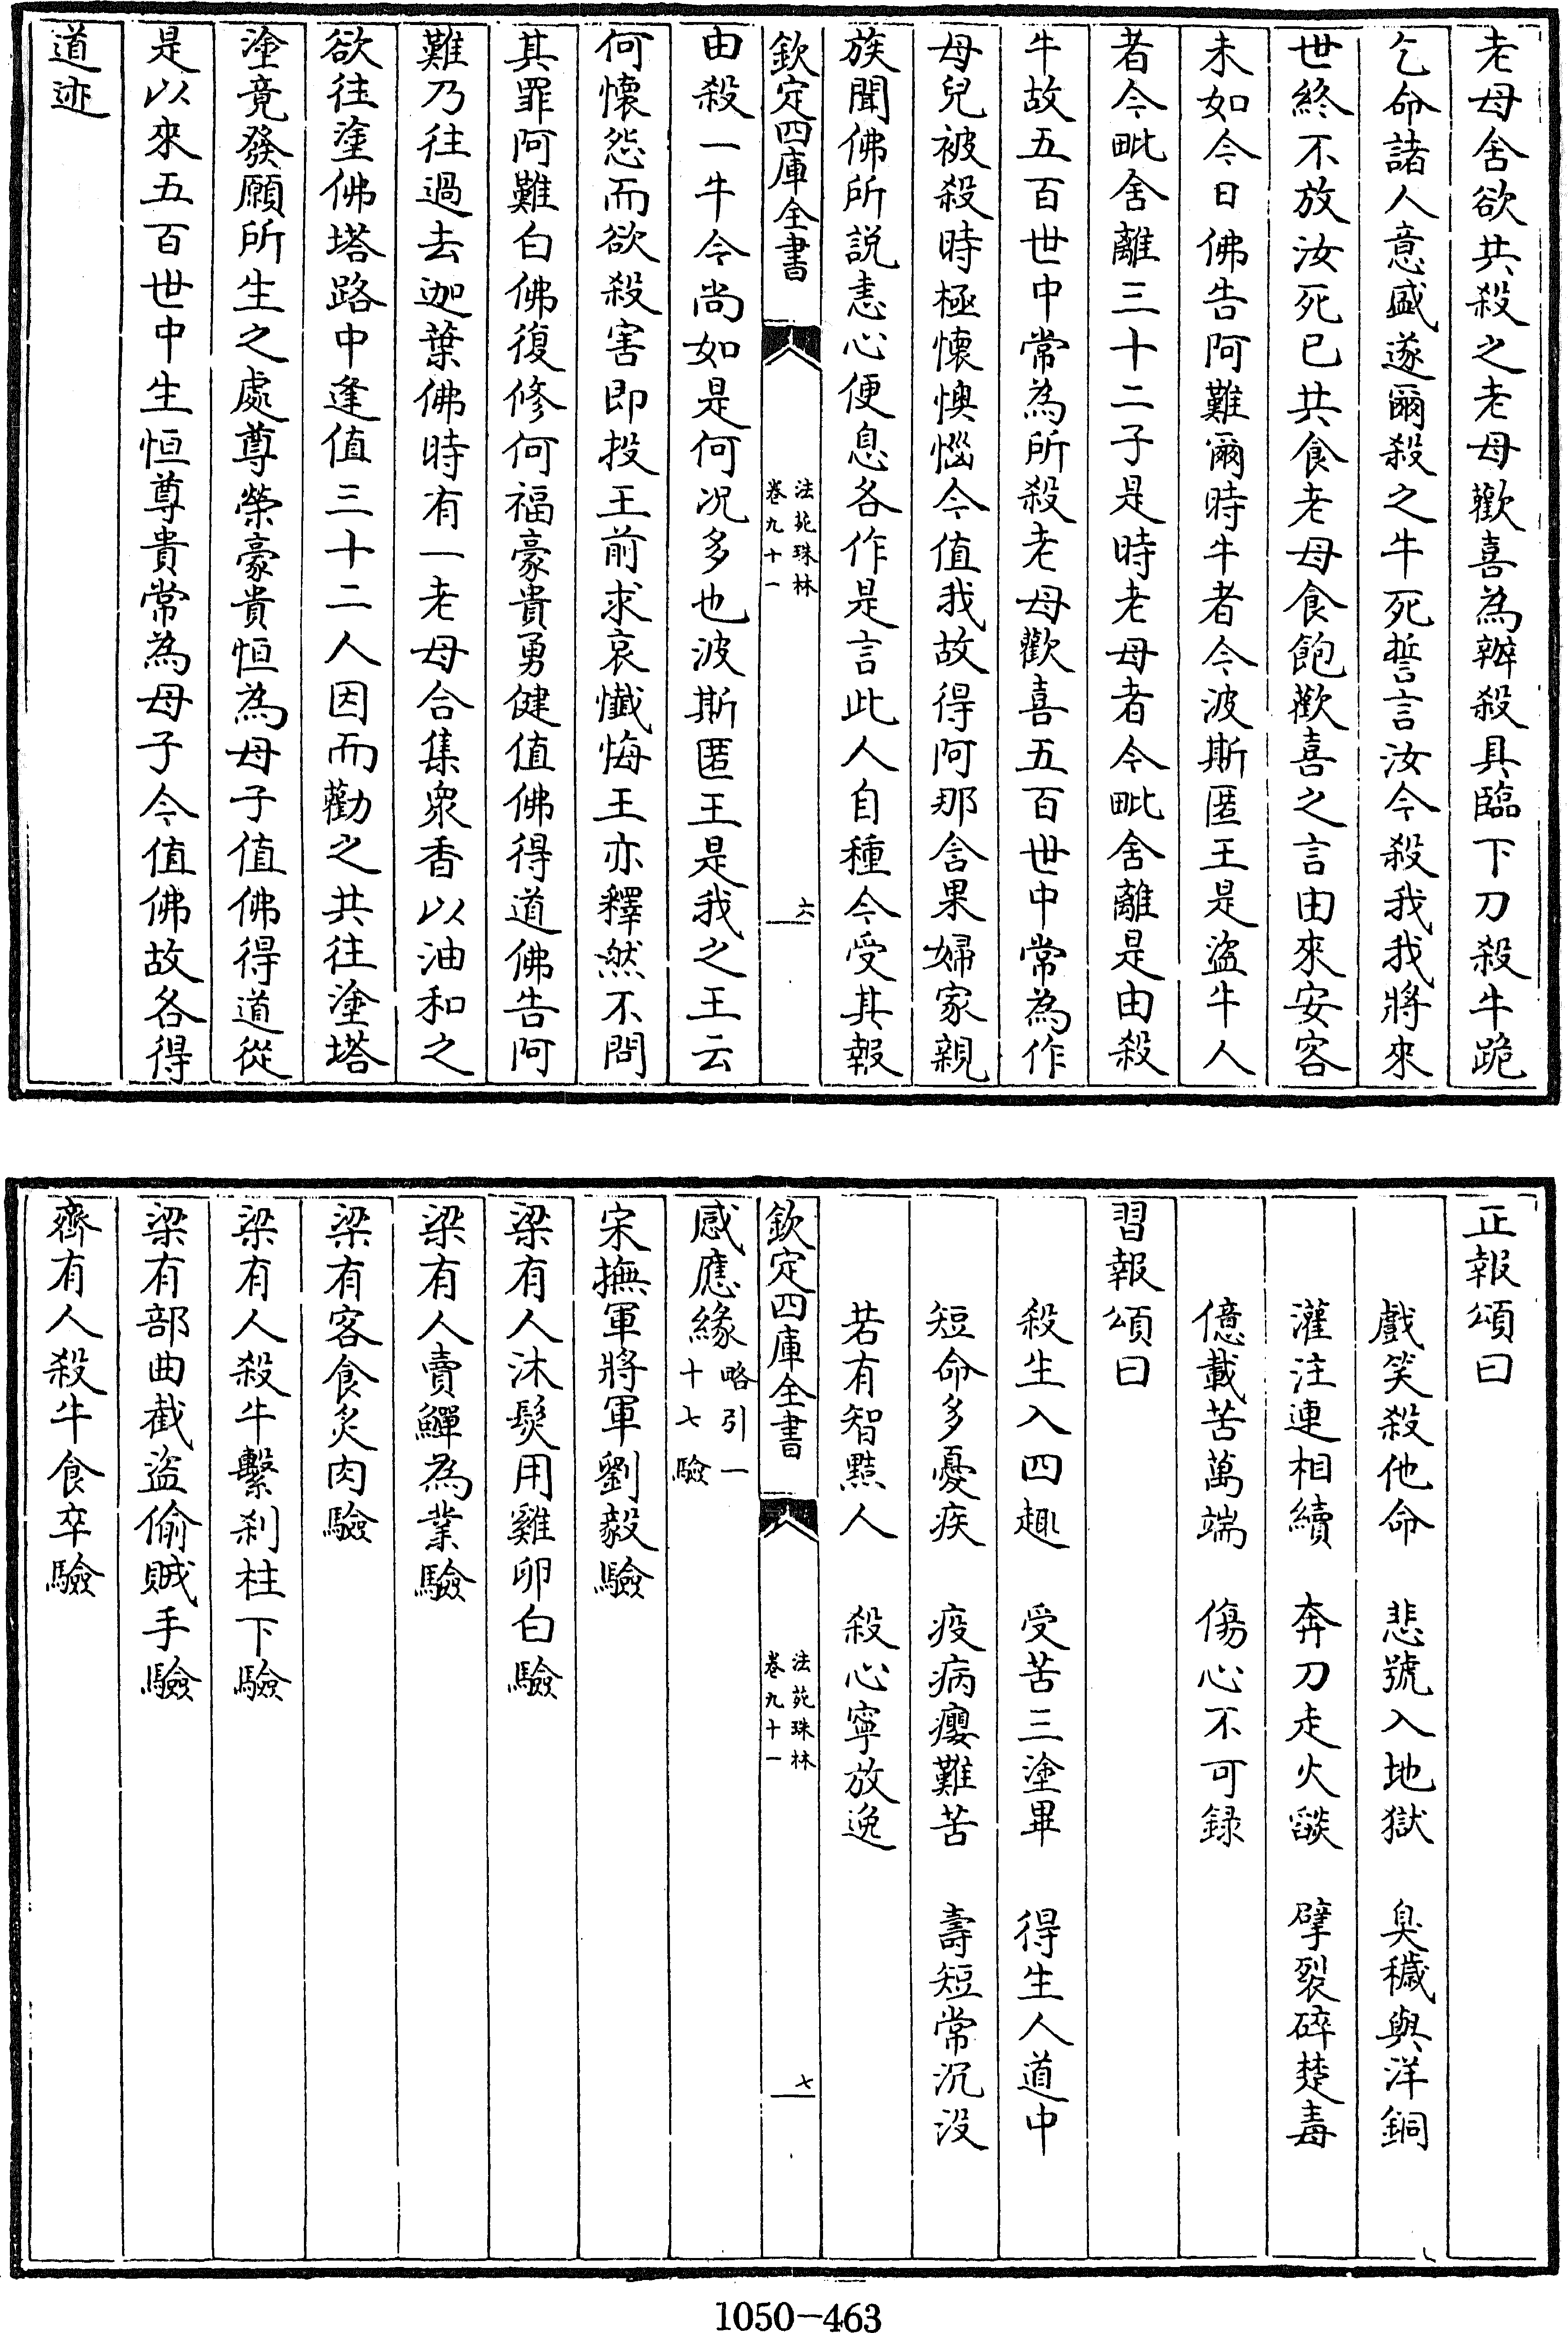 老母舍欲共殺之老母歡喜為辦殺具臨下刀殺牛跪
乞命諸人意盛遂爾殺之牛死誓言汝今殺我我將來
世終不放汝死已共食老母食飽歡喜之言由來安客
未如今日佛告阿難爾時牛者今波斯匿王是盜牛人
者今毗舍離三十二子是時老母者今毗舍離是由殺
牛故五百世中常為所殺老母歡喜五百世中常為作
母兒被殺時極懷懊惱今值我故得阿那含果婦家親
族聞佛所説恚心便息各作是言此人自種今受其報
欽定四庫全書
法苑珠林
卷九十一
六
由殺一牛今尚如是何况多也波斯匿王是我之王云
何懷怨而欲殺害即投王前求哀懺悔王亦釋然不問
其罪阿難白佛復修何福豪貴勇健值佛得道佛告阿
難乃往過去迦葉佛時有一老母合集衆香以油和之
欲往塗佛塔路中逢值三十二人因而勸之共往塗塔
塗竟發願所生之處尊榮豪貴恒為母子值佛得道從
是以來五百世中生恒尊貴常為母子今值佛故各得
道迹
正報頌曰
戲笑殺他命 悲號入地獄 臭穢與洋銅
灌注連相續 奔刀走火燄 擘裂碎楚毒
億載苦萬端 傷心不可録
習報頌曰
殺生入四趣 受苦三塗畢 得生人道中
短命多憂疾 疫病癭難苦 壽短常沉没
若有智黠人 殺心寧放逸
欽定四庫全書
法苑珠林
卷九十一
七
感應緣略引一十七驗
宋撫軍將軍劉毅驗
梁有人沐髮用雞卵白驗
梁有人賣鱓為業驗
梁有客食炙肉驗
梁有人殺牛繫刹柱下驗
梁有部曲截盜偷賊手驗
齊有人殺牛食卒驗
1050-463